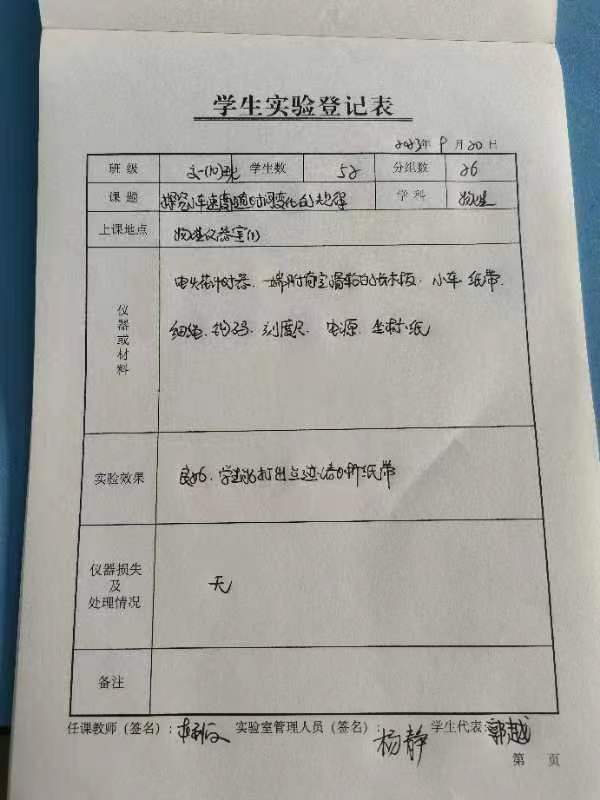 学生实验登记表
2023年 9 月 20 日
班 级 高一(10)班 学生数 52 分组数 26
课 题 探究小车速度随时间变化的规律 学 科 物理
上课地点 物理仪器室(1)
仪器或材料 电火花计时器、一端附有定滑轮的长木板、小车、纸带、
细绳、钩码、刻度尺、电源、坐标纸
实验效果 良好、学生能打出点迹清晰纸带
仪器损失及处理情况 无
备注
任课教师(签名): 实验室管理人员(签名): 杨静 学生代表: 郭越
第 页